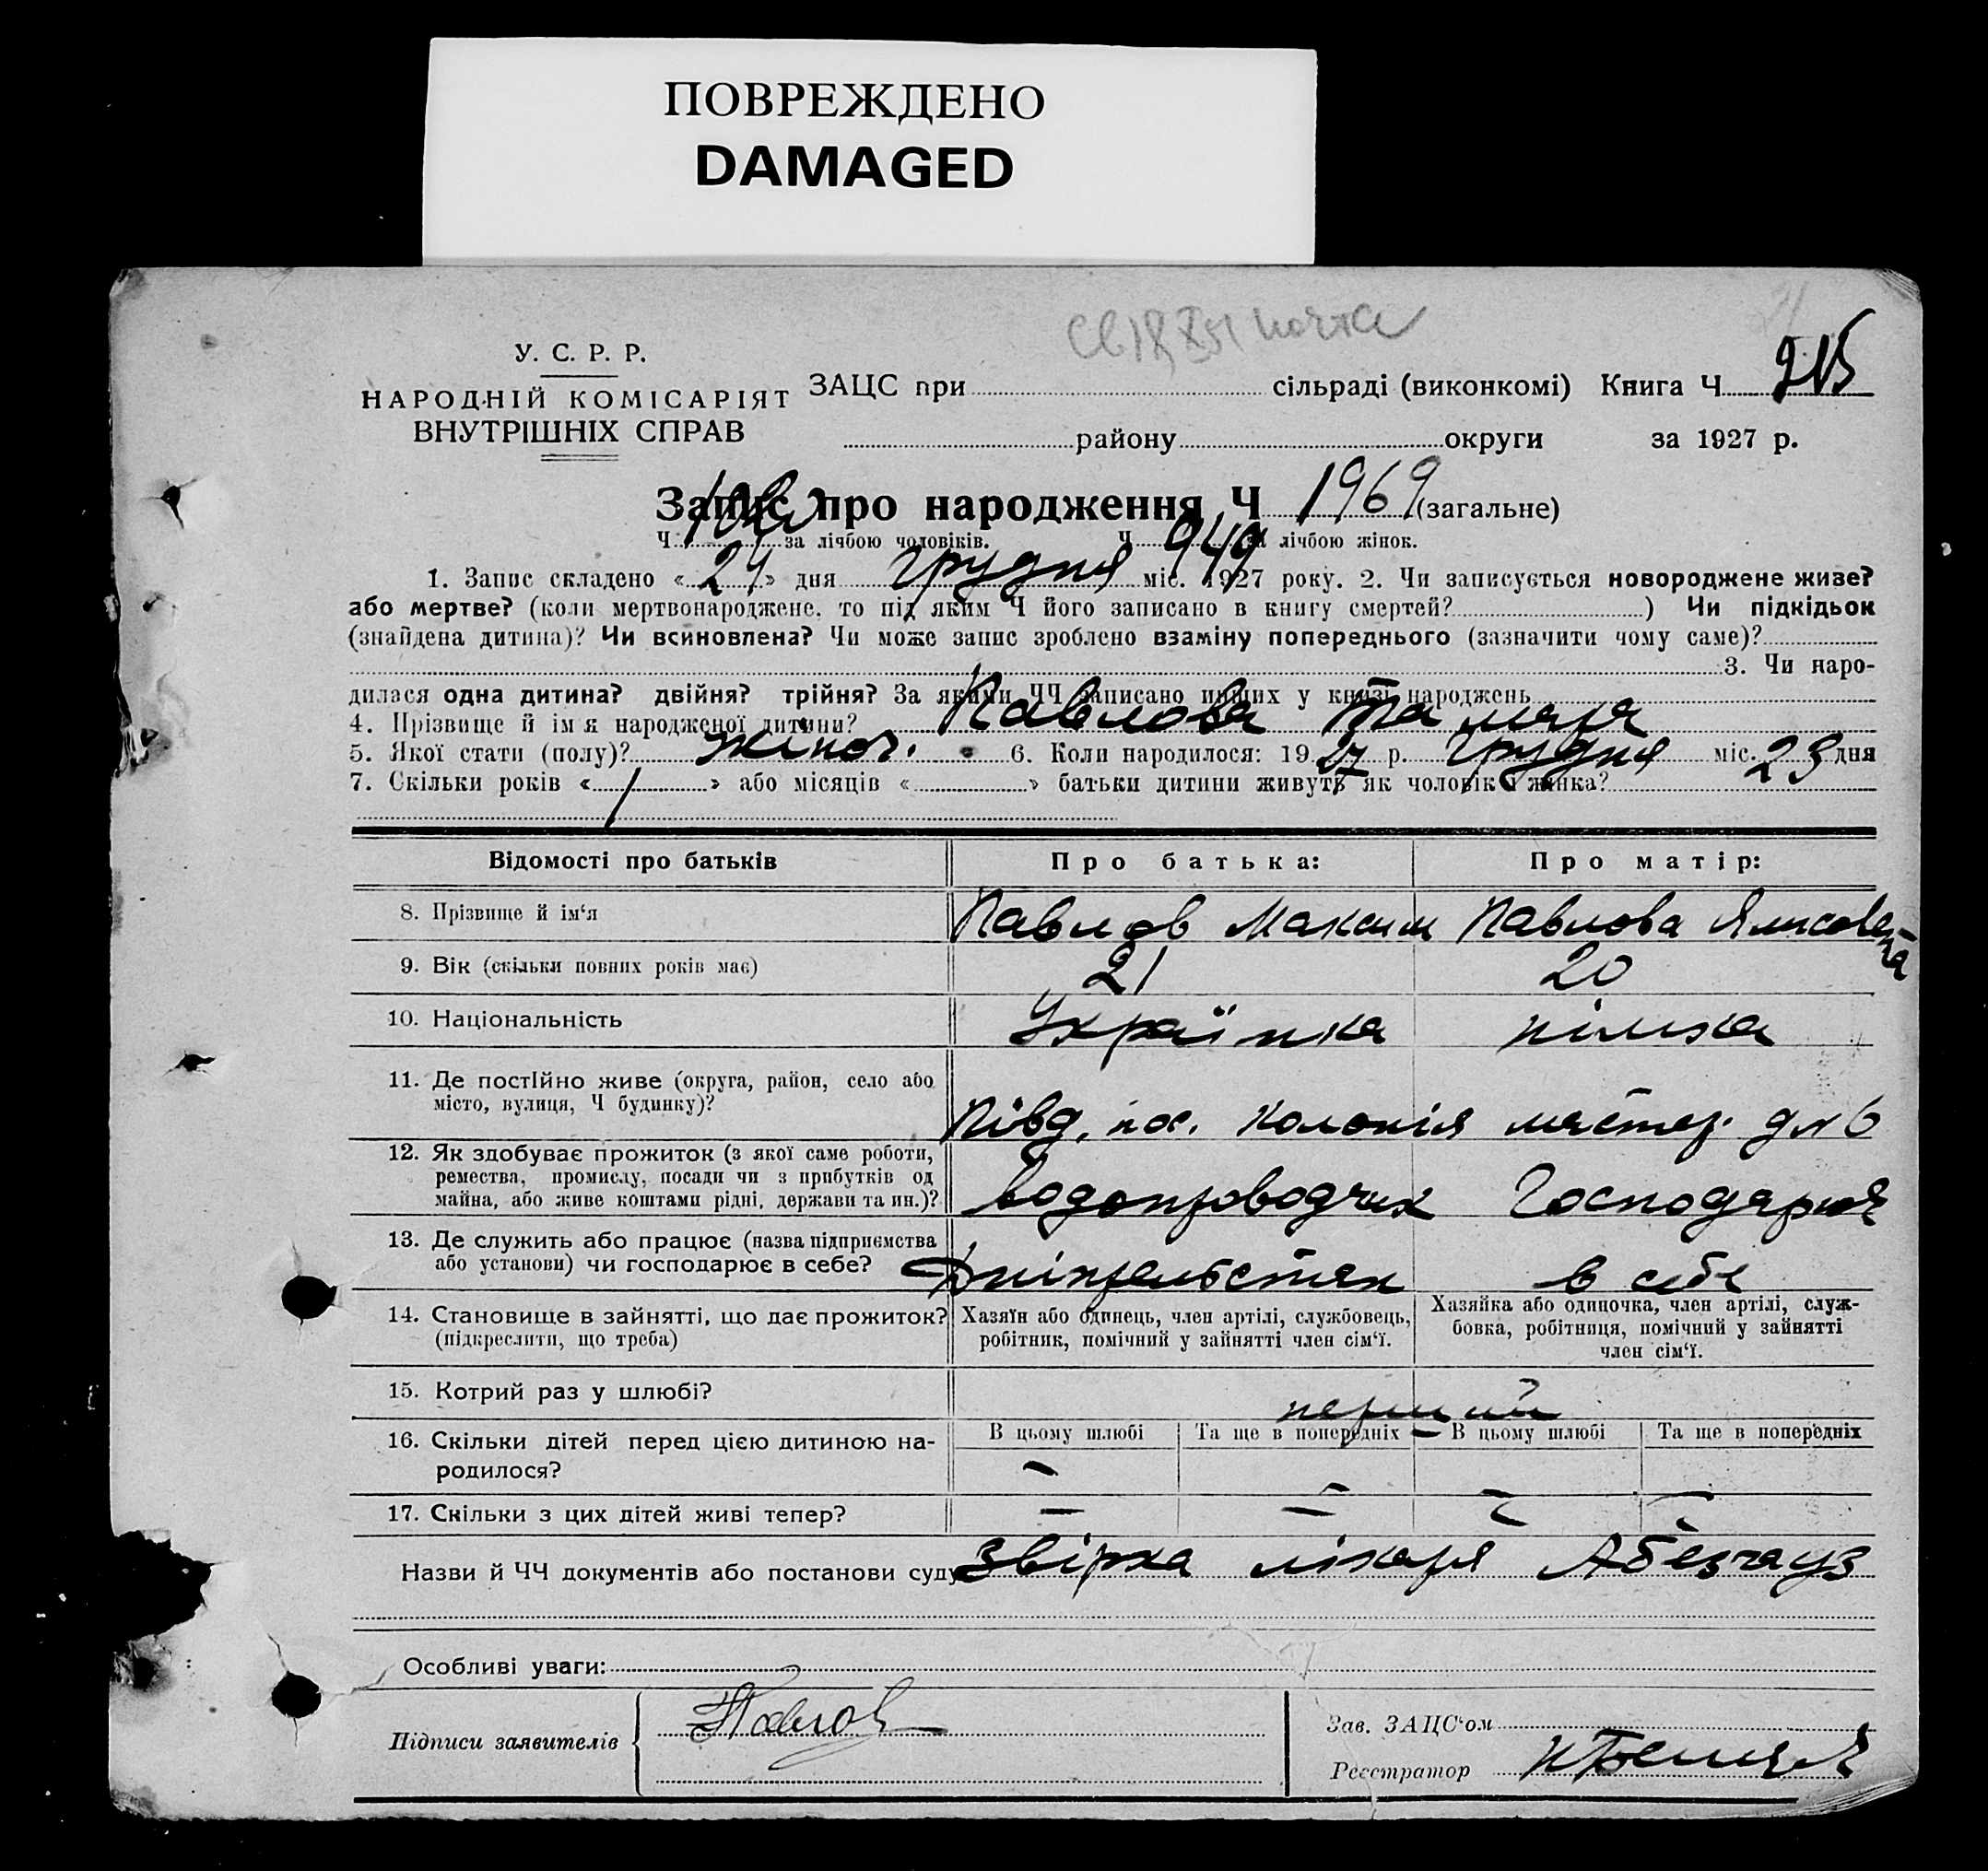 ПОВРЕЖДЕНО
DAMAGED
У. С. Р. Р.
НАРОДНІЙ КОМІСАРІЯТ
ВНУТРІШНІХ СПРАВ
ЗАЦС при сільраді (виконкомі) Книга Ч
району округи за 1927 р.
Запис про народження Ч 1969 (загальне)
Ч за лічбою чоловіків. Ч 949 за лічбою жінок.
1. Запис складено « 24 » дня грудня міс. 1927 року. 2. Чи записується новороджене живе?
або мертве? (коли мертвонароджене, то під яким Ч його записано в книгу смертей? ) Чи підкідьок
(знайдена дитина)? Чи всиновлена? Чи може запис зроблено взаміну попереднього (зазначити чому саме)?
3. Чи наро-
дилася одна дитина? двійня? трійня? За якими ЧЧ записано инших у книзі народжень
4. Прізвище й ім я народженої дитини? Павлова Тамара
5. Якої стати (полу)? жіноч. 6. Коли народилося: 19 27 р. грудня міс. 23 дня
7. Скільки років « / » або місяців « » батьки дитини живуть як чоловік і жінка?
Відомості про батьків Про батька: Про матір:
8. Прізвище й ім‘я Павлов Максим Павлова Єлисовета
9. Вік (скільки повних років має) 21 20
10. Національність Українка німка
11. Де постІйно живе (округа, район, село або
місто, вулиця, Ч будинку)? Півд. пос. Колонія мастер. д № 6
12. Як здобуває прожиток (з якої саме роботи,
ремества, промислу, посади чи з прибутків од
майна, або живе коштами рідні, держави та ин.)? водопроводчик Господарює
13. Де служить або працює (назва підприємства
або установи) чи господарює в себе? в себе
14. Становище в зайнятті, що дає прожиток?
(підкреслити, що треба)
Хазяїн або одинець, член артілі, службовець,
робітник, помічний у зайнятті член сім‘ї.
Хазяйка або одиночка, член артілі, служ-
бовка, робітниця, помічний у зайнятті
член сім‘ї.
15. Котрий раз у шлюбі? перший
16. Скільки дітей перед цією дитиною на-
родилося?
В цьому шлюбі Та ще в попередніх В цьому шлюбі Та ще в попередніх
– – – –
17. Скільки з цих дітей живі тепер? – – – –
Назви й ЧЧ документів або постанови суду звірка лікаря Абезгауз
Особливі уваги:
Підписи заявителів Павлов
Зав. ЗАЦС‘ом
Реєстратор